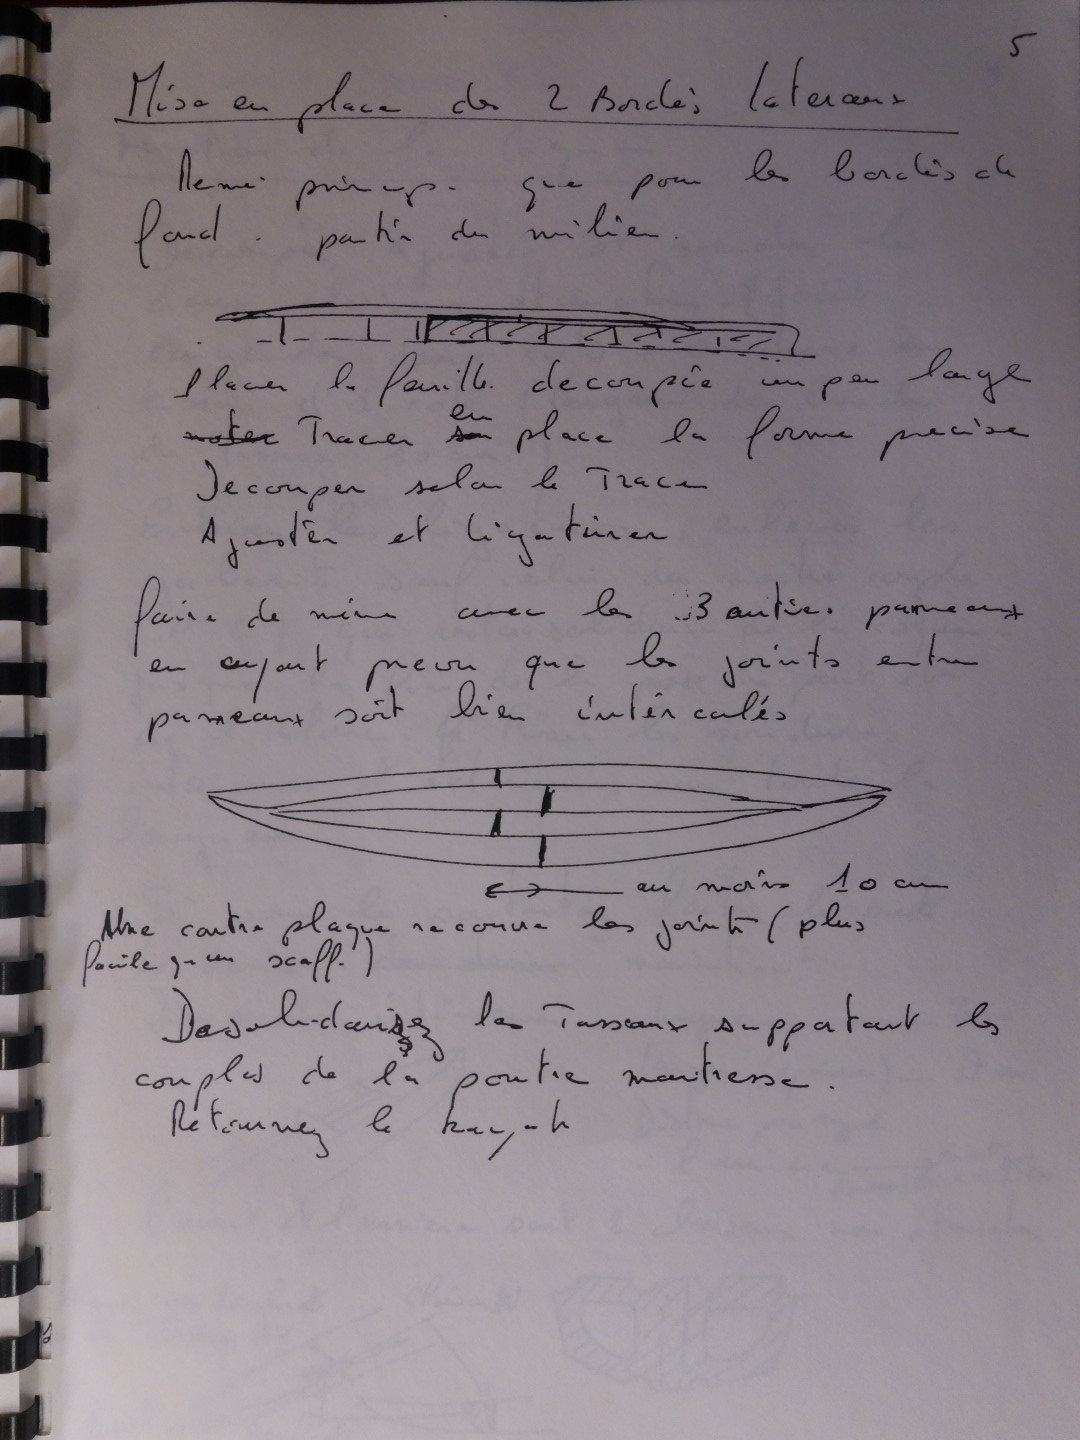 5
Mise en place des 2 Bordés lateraux
Meme princip. que pour les bordés de
fond. partir du milieu.
Placer la feuille decoupée un peu large
noter Tracer en sa place la forme precise
Decouper selon le Trace
Ajuster et ligaturer
faire de même avec les 3 autres panneaux
en ayant prevu que les joints entre
panneaux soit bien intercalés
au moins 10 cm
Une contre plaque recouvre les joints (plus
facile qu'un scaff.)
Desolidarisez les Tasseaux supportant les
couples de la poutre maitresse.
Retournez le kayak